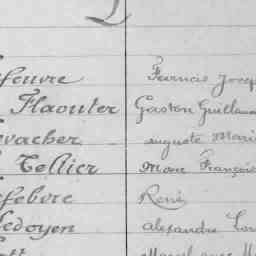 L
efeuvre Francis Jocq
Flaouter Gaston Guillau
evacher auguste Mari
Tellier Marc François
efebvre René
edoyen alexandre Lou